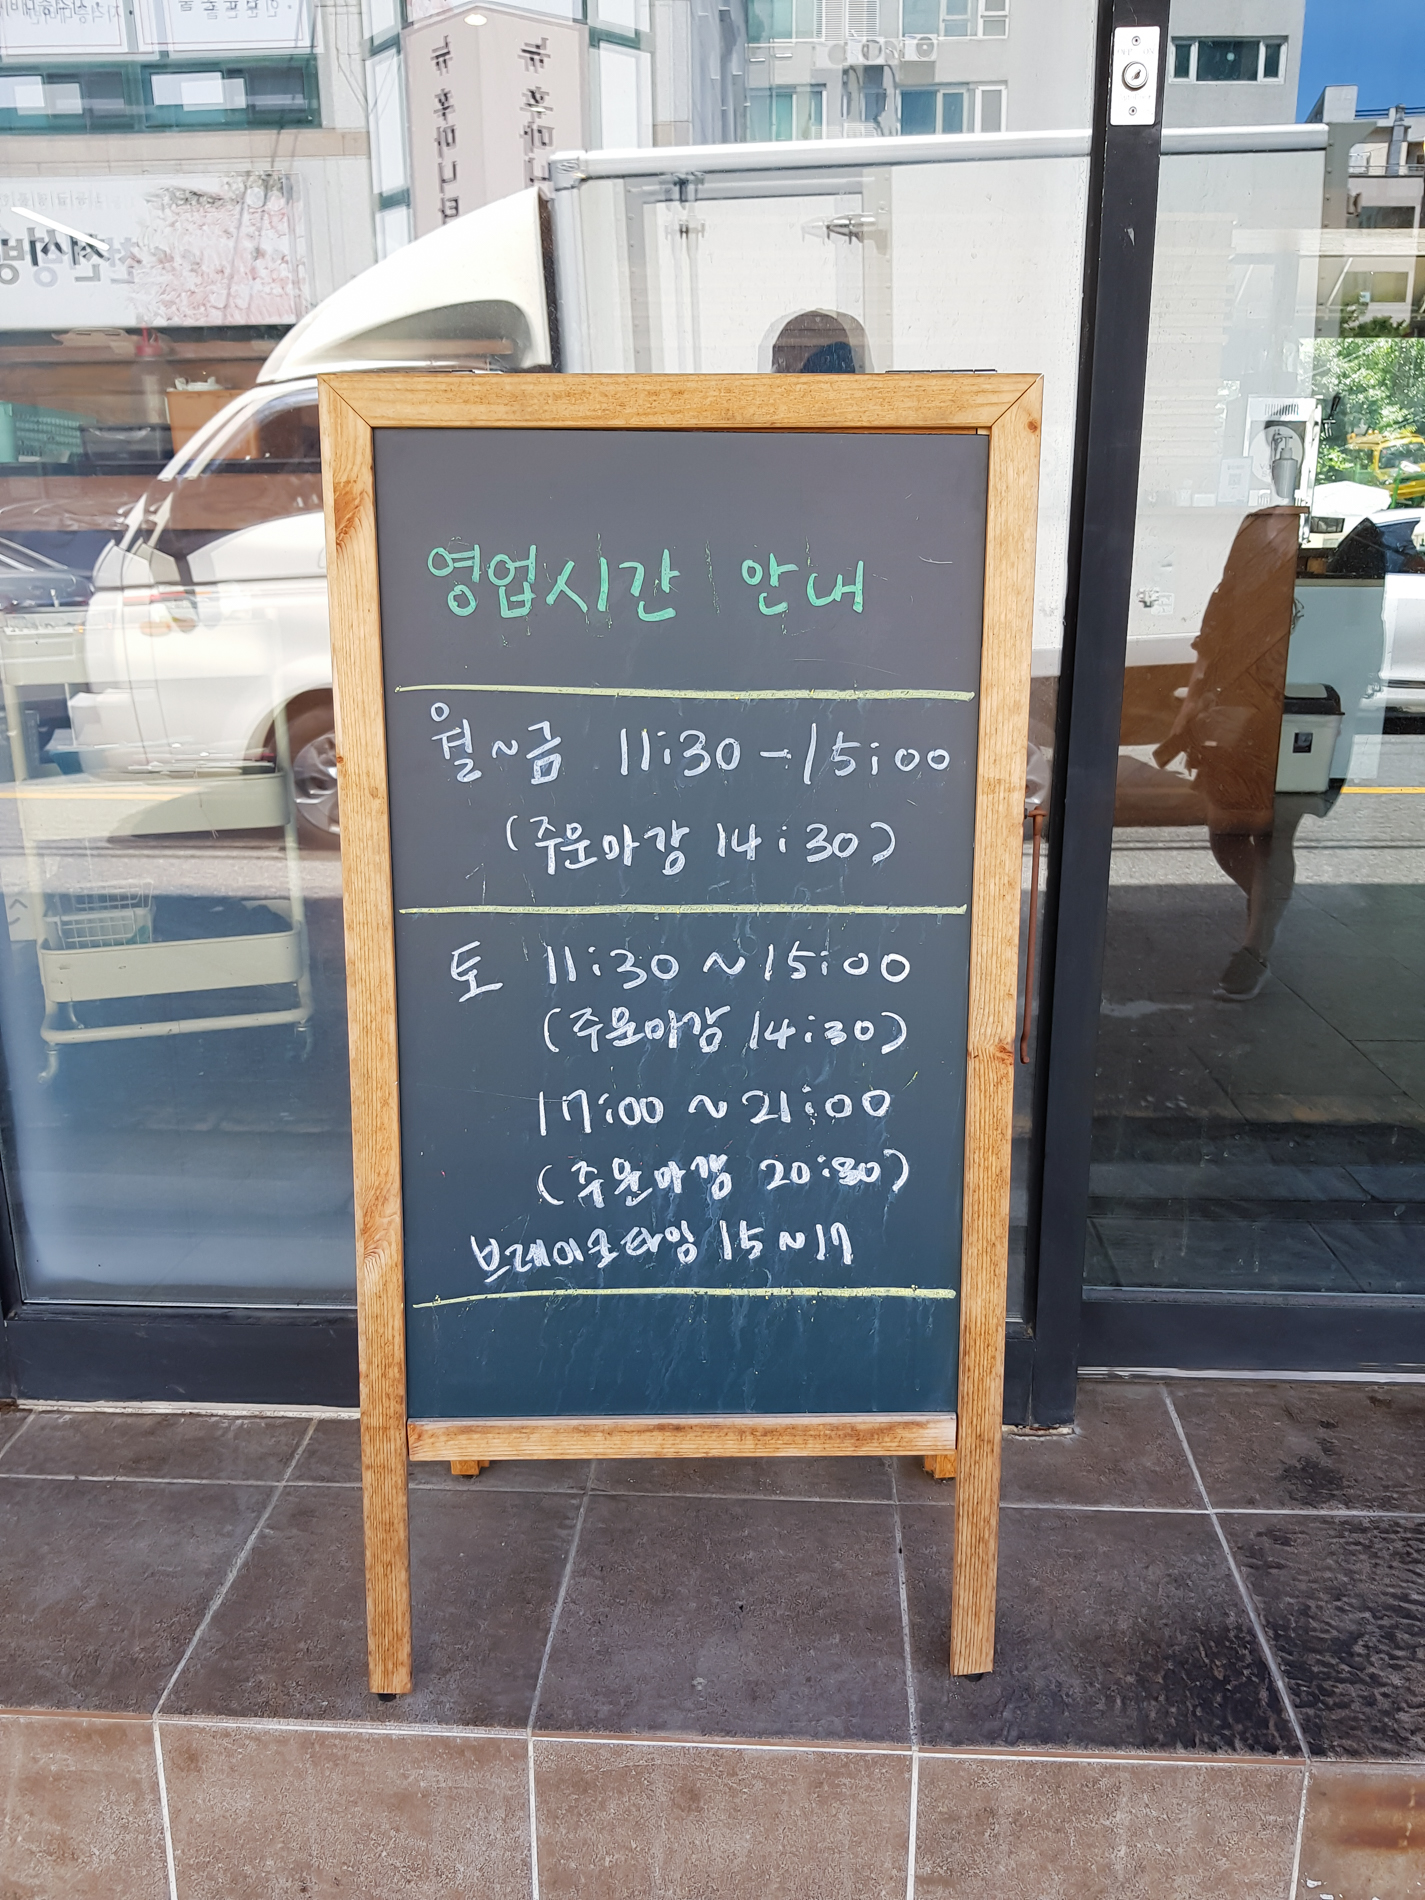 뉴 후마니타
뉴 후마니타
영업시간 안내
월~금 11:30-15:00
(주문마감 14:30)
토 11:30~15:00
(주문마감 14:30)
17:00~21:00
(주문마감 20:30)
브레이크타임 15~17